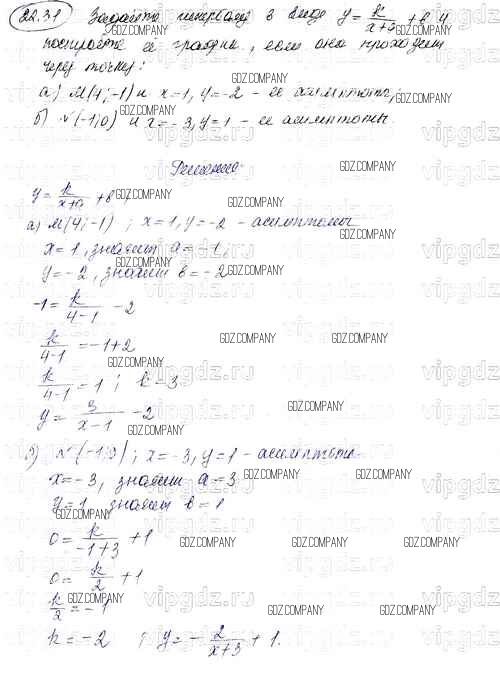 22.31 Задайте гиперболу в виде y = k/(x+a) + b и
постройте её график, если она проходит
через точку:
а) M(4; -1) и x=1, y=-2 - её асимптоты;
б) N(-1; 0) и x=-3, y=1 - её асимптоты.
Решение
y = k/(x+a) + b
а) M(4; -1) ; x=1, y=-2 - асимптоты
x=1, значит a=-1
y=-2, значит b=-2
-1 = k/(4-1) - 2
k/(4-1) = -1+2
k/(4-1) = 1 ; k=3
y = 3/(x-1) - 2
б) N(-1; 0) ; x=-3, y=1 - асимптоты
x=-3, значит a=3
y=1, значит b=1
0 = k/(-1+3) + 1
0 = k/2 + 1
k/2 = -1
k=-2 ; y = - 2/(x+3) + 1.